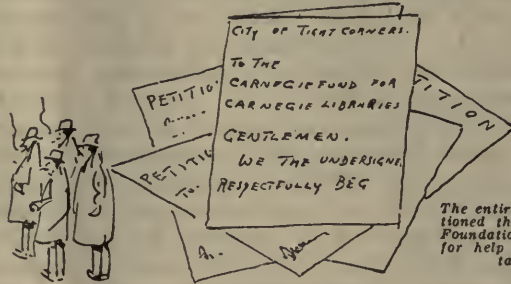 CITY OF TIGHT CORNERS.
TO THE
CARNEGIE FUND FOR
CARNEGIE LIBRARIES
GENTLEMEN.
WE THE UNDERSIGNE
RESPECTFULLY BEG
PETITIO
PETITIO
TO.
TITION
The entir
tioned th
Foundation
for help
ta